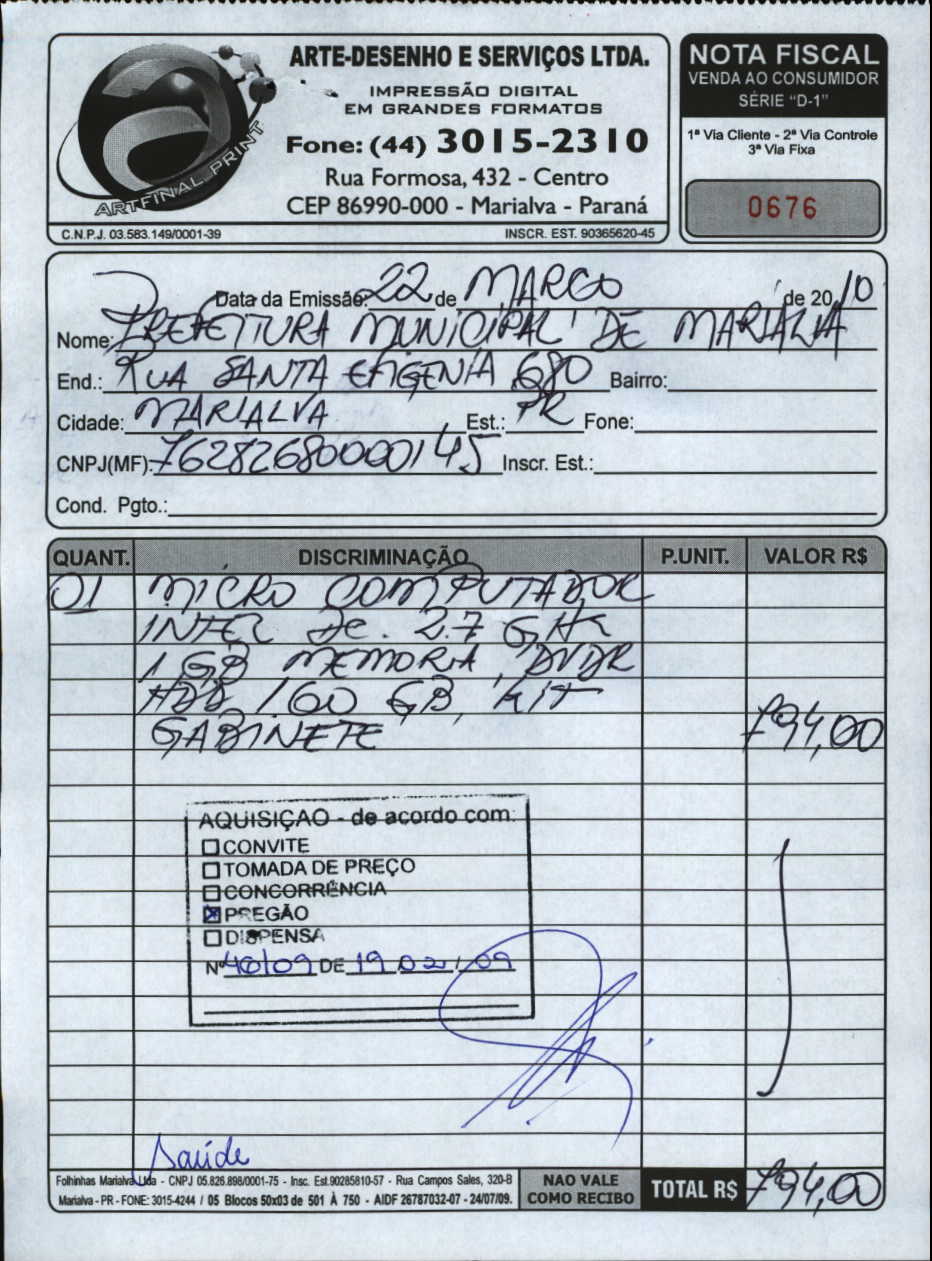 ARTE-DESENHO E SERVIÇOS LTDA.
IMPRESSÃO DIGITAL
EM GRANDES FORMATOS
Fone: (44) 3015-2310
Rua Formosa, 432 - Centro
CEP 86990-000 - Marialva - Paraná
ARTFINAL PRINT
C.N.P.J. 03.583.149/0001-39 INSCR. EST. 90365620-45
NOTA FISCAL
VENDA AO CONSUMIDOR
SÉRIE "D-1"
1ª Via Cliente - 2ª Via Controle
3ª Via Fixa
0676
Data da Emissão: 22 de MARÇO de 2010
Nome: PREFEITURA MUNICIPAL DE MARIALVA
End.: RUA SANTA EFIGENIA 680 Bairro:
Cidade: MARIALVA Est.: PR Fone:
CNPJ(MF): 76282680000145 Inscr. Est.:
Cond. Pgto.:
QUANT. DISCRIMINAÇÃO P.UNIT. VALOR R$
01 MICRO COMPUTADOR
INTEL DC. 2.7 GHz
1 GB MEMORIA, DVDR
HDD 160 GB, KIT
GABINETE 794,00
AQUISIÇAO - de acordo com:
CONVITE
TOMADA DE PREÇO
CONCORRÊNCIA
PREGÃO
DISPENSA
Nº 40/09 DE 19 02 / 09
Saúde
Folhinhas Marialva Ltda - CNPJ 05.826.898/0001-75 - Insc. Est.90285810-57 - Rua Campos Sales, 320-B
Marialva - PR - FONE: 3015-4244 / 05 Blocos 50x03 de 501 À 750 - AIDF 26787032-07 - 24/07/09.
NAO VALE
COMO RECIBO
TOTAL R$ 794,00